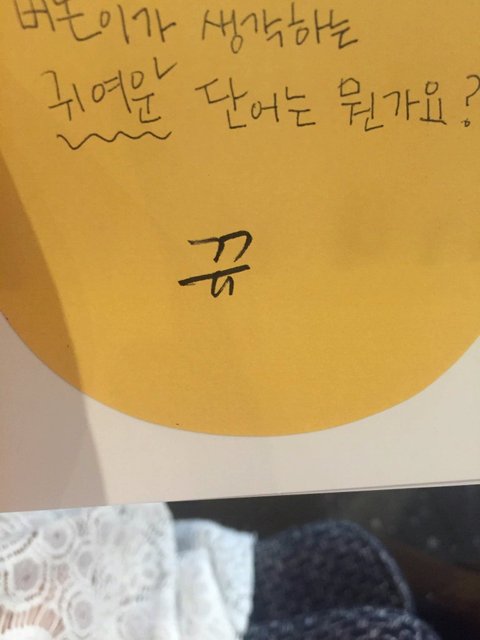 버논이가 생각하는
귀여운 단어는 뭔가요?
뀨